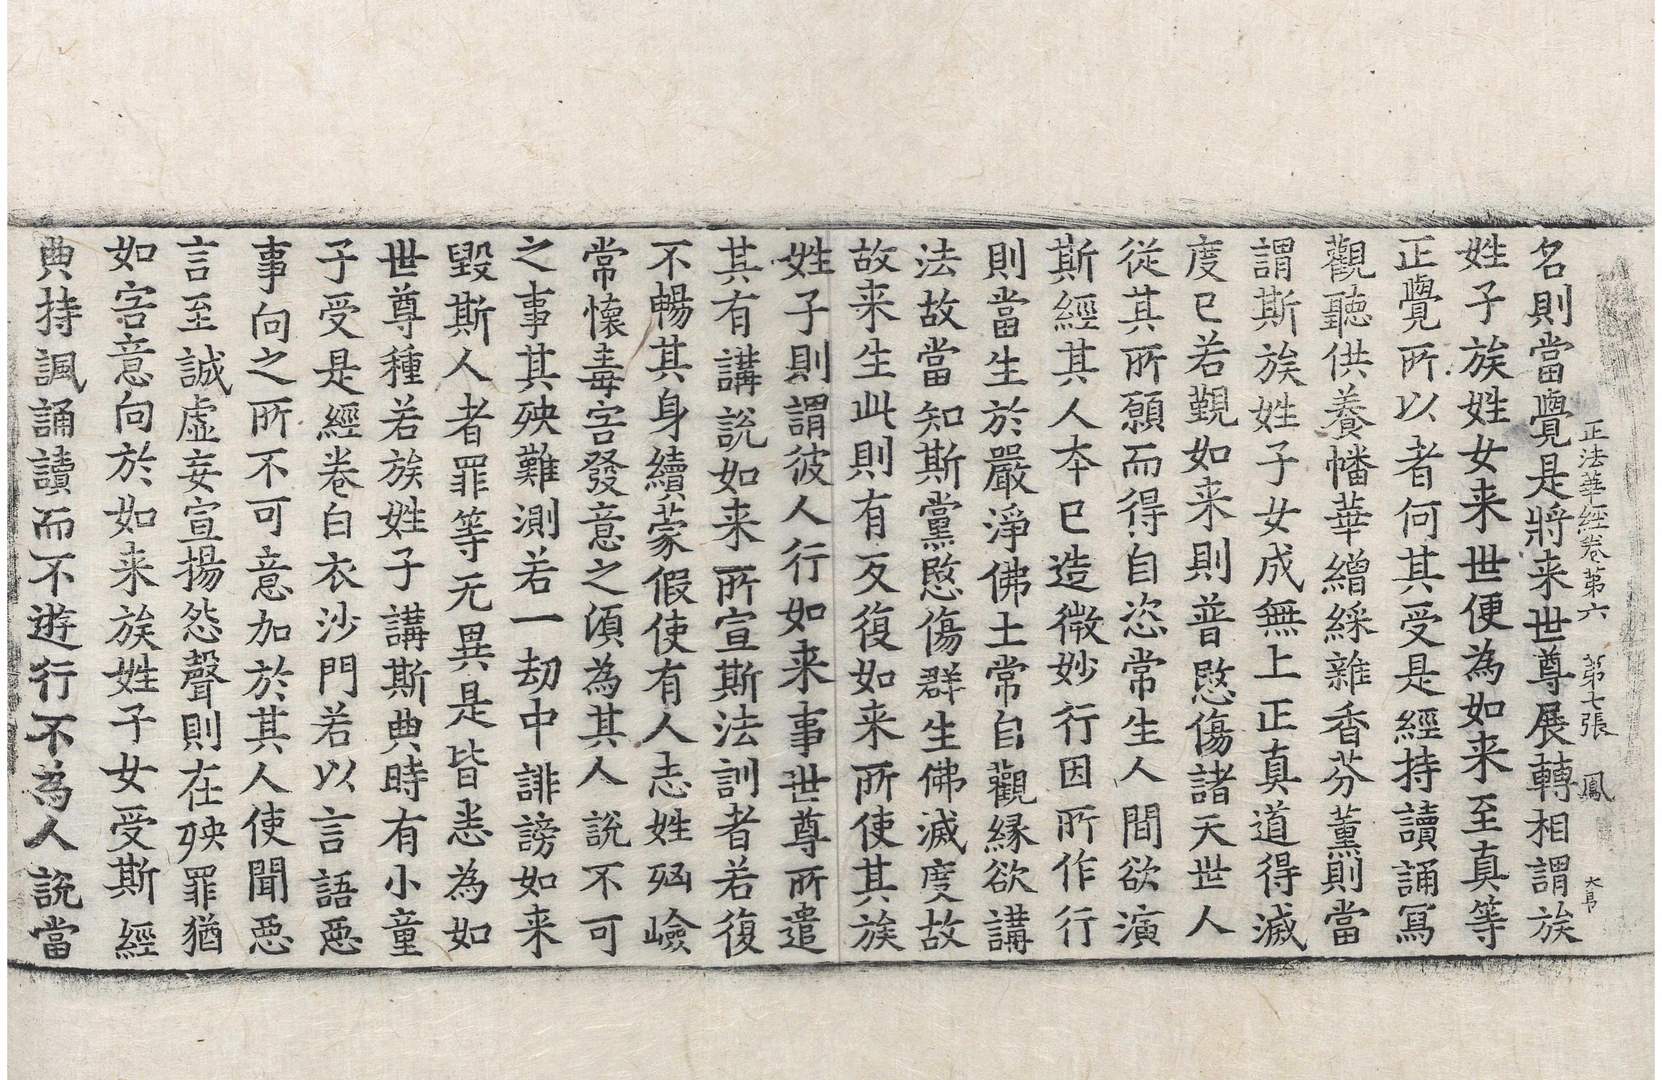 正法華經卷第六　第七張　鳳
名則當覺是將来世尊展轉相謂族
姓子族姓女来世便為如来至真等
正覺所以者何其受是經持讀誦寫
觀聽供養幡華繒綵雜香芬薰則當
謂斯族姓子女成無上正真道得滅
度已若覲如来則普愍傷諸天世人
從其所願而得自恣常生人間欲演
斯經其人本已造微妙行因所作行
則當生於嚴淨佛土常自觀緣欲講
法故當知斯黨愍傷群生佛滅度故
故来生此則有反復如来所使其族
姓子則謂彼人行如来事世尊所遣
其有講說如来所宣斯法訓者若復
不暢其身續蒙假使有人志姓㓙嶮
常懷毒害發意之頃為其人說不可
之事其殃難測若一劫中誹謗如来
毀斯人者罪等无異是皆悉為如
世尊種若族姓子講斯典時有小童
子受是經卷白衣沙門若以言語惡
事向之所不可意加於其人使聞惡
言至誠虛妄宣揚怨聲則在殃罪猶
如害意向於如来族姓子女受斯經
典持諷誦讀而不遊行不為人說當